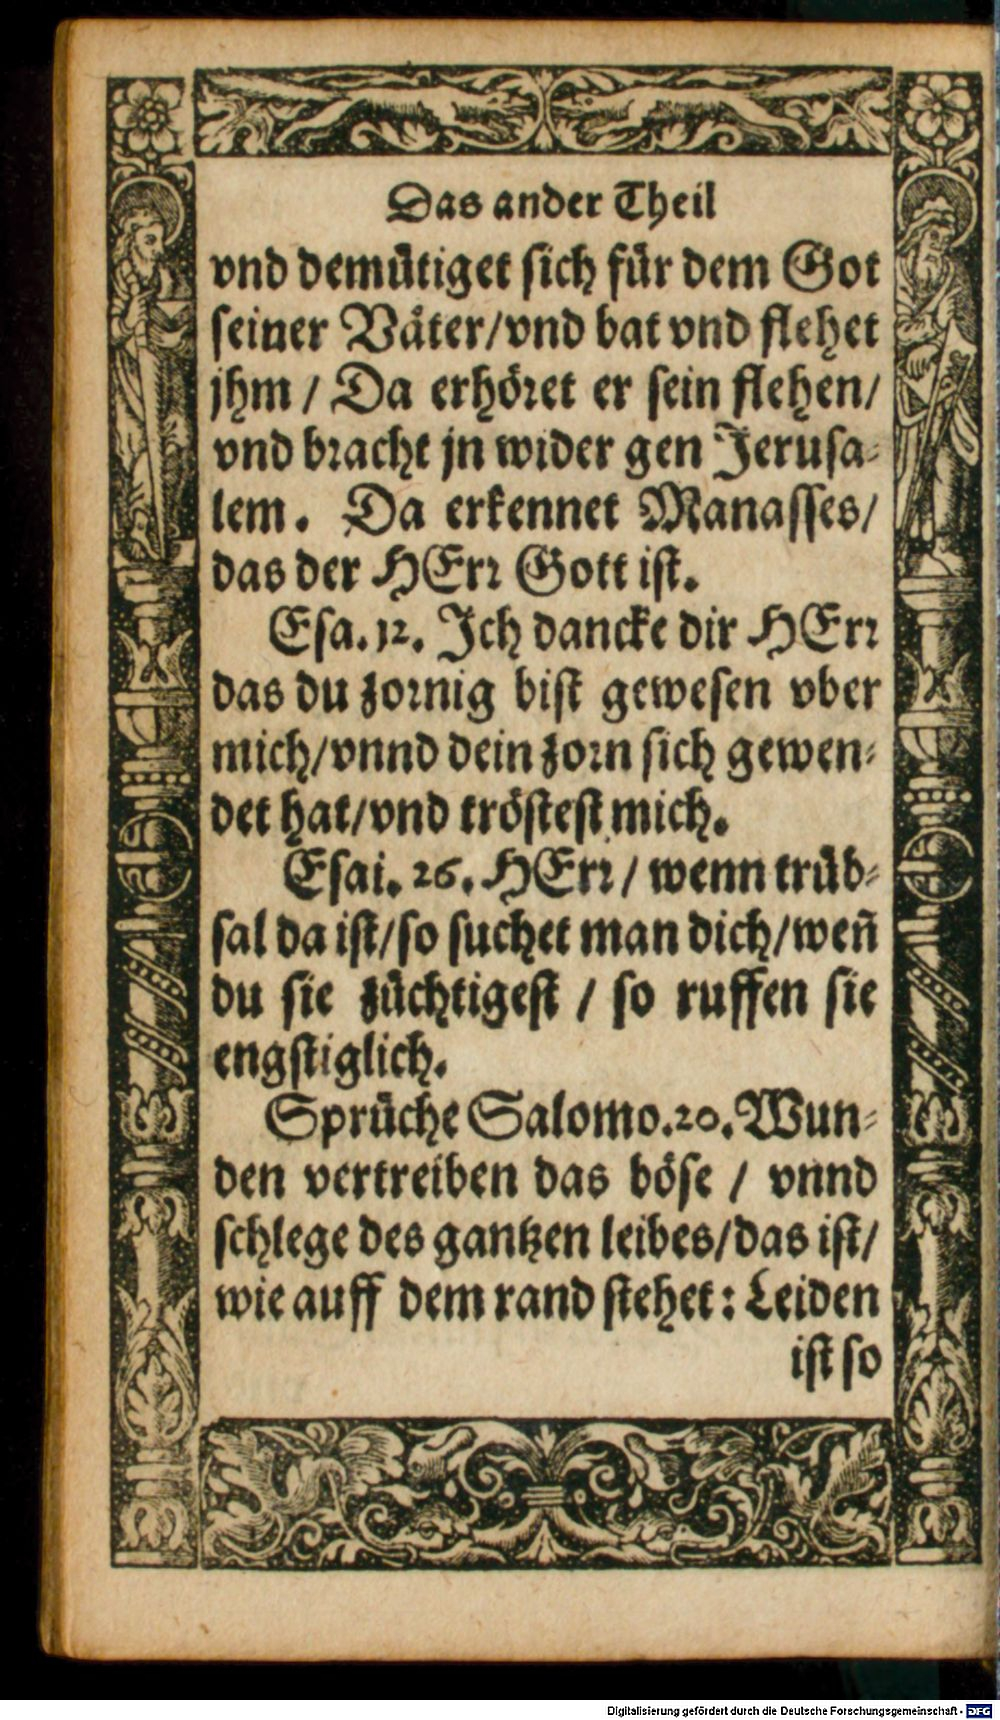 Das ander Theil
vnd demütiget sich für dem Got
seiner Väter/vnd bat vnd flehet
jhm / Da erhöret er sein flehen/
vnd bracht jn wider gen Jerusa-
lem. Da erkennet Manasses/
das der HErr Gott ist.
Esa. 12. Ich dancke dir HErr
das du zornig bist gewesen vber
mich/vnnd dein zorn sich gewen-
det hat/vnd tröstest mich.
Esai. 26. HErr / wenn trüb-
sal da ist/so suchet man dich/weñ
du sie züchtigest / so ruffen sie
engstiglich.
Sprüche Salomo.20. Wun-
den vertreiben das böse / vnnd
schlege des gantzen leibes/das ist/
wie auff dem rand stehet: Leiden
ist so
Digitalisierung gefördert durch die Deutsche Forschungsgemeinschaft - DFG